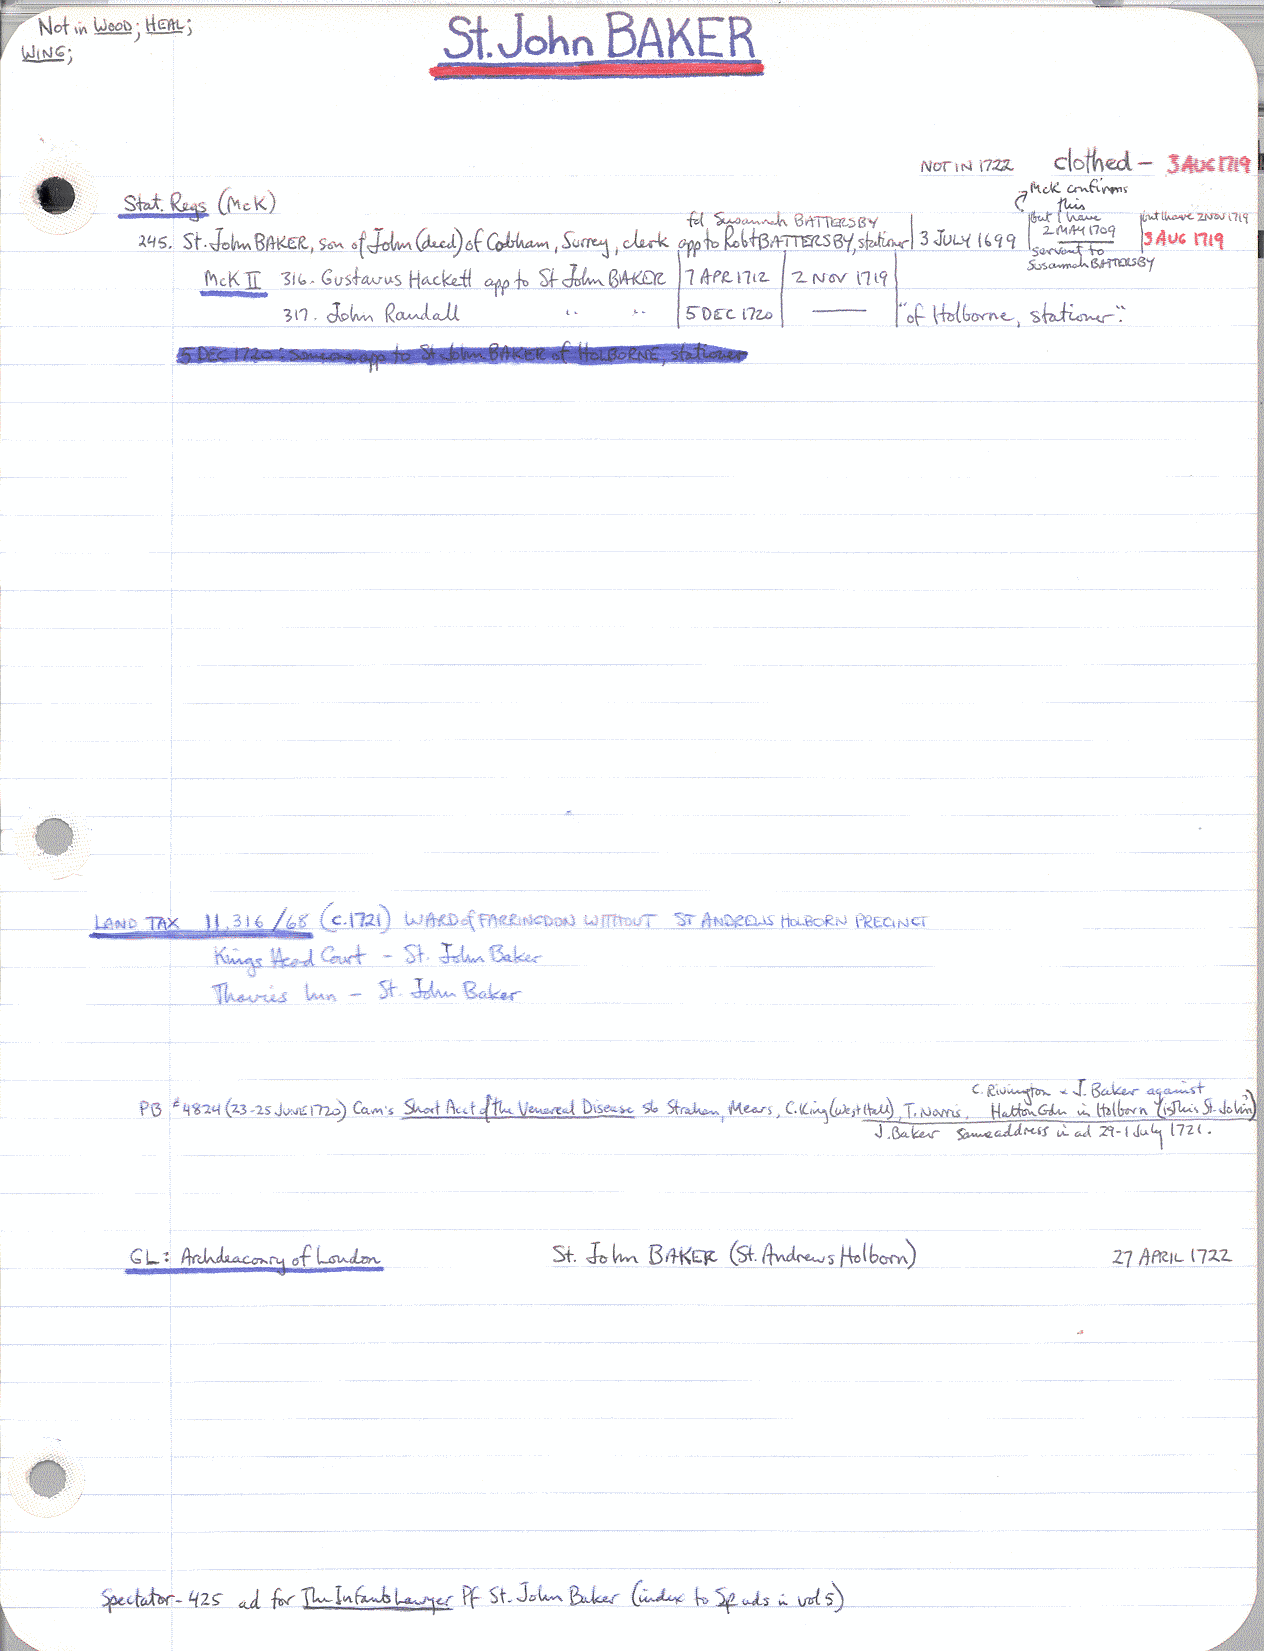 Not in WOOD; HEAL;
WING;
St. John BAKER
NOT IN 1722 clothed - 3 AUG 1719
McK confirms
this
Stat. Regs (McK)
fd Susannah BATTERSBY
but I have 2 MAY 1709
servant to Susannah BATTERSBY
but I have 2 NOV 1719
245. St. John BAKER, son of John (decd) of Cobham, Surrey, clerk app to Robt BATTERSBY, stationer 3 JULY 1699 3 AUG 1719
McK II 316. Gustavus Hackett app to St John BAKER 7 APR 1712 2 NOV 1719
317. John Randall " " 5 DEC 1720 — "of Holborne, stationer".
5 DEC 1720: Someone app to St. John BAKER of HOLBORNE, stationer
LAND TAX 11,316/68 (c.1721) WARD of FARRINGDON WITHOUT ST ANDREWS HOLBORN PRECINCT
Kings Head Court - St. John Baker
Thavies Inn - St. John Baker
C. Rivington & J. Baker against
PB #4824 (23-25 JUNE 1720) Cam's Short Acct of the Venereal Disease s/b Strahan, Mears, C. King (West Hall), T. Norris, Hatton Gdn in Holborn (is this St. John?)
J. Baker same address in ad 29-1 July 1721.
GL: Archdeaconry of London St. John BAKER (St. Andrews Holborn) 27 APRIL 1722
Spectator - 425 ad for The Infants Lawyer Pf St. John Baker (index to Sp ads in vol 5)